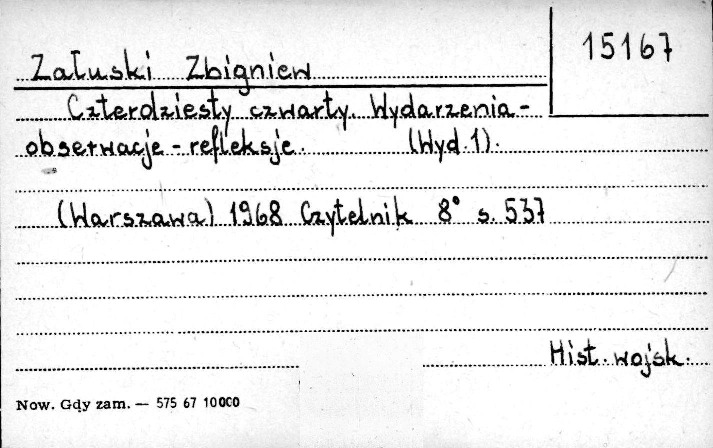 15167
Załuski Zbigniew
Czterdziesty czwarty. Wydarzenia-
obserwacje - refleksje. (Wyd. 1).
(Warszawa) 1968 Czytelnik 8° s. 537
Hist. wojsk.
Now. Gdy zam. — 575 67 10000